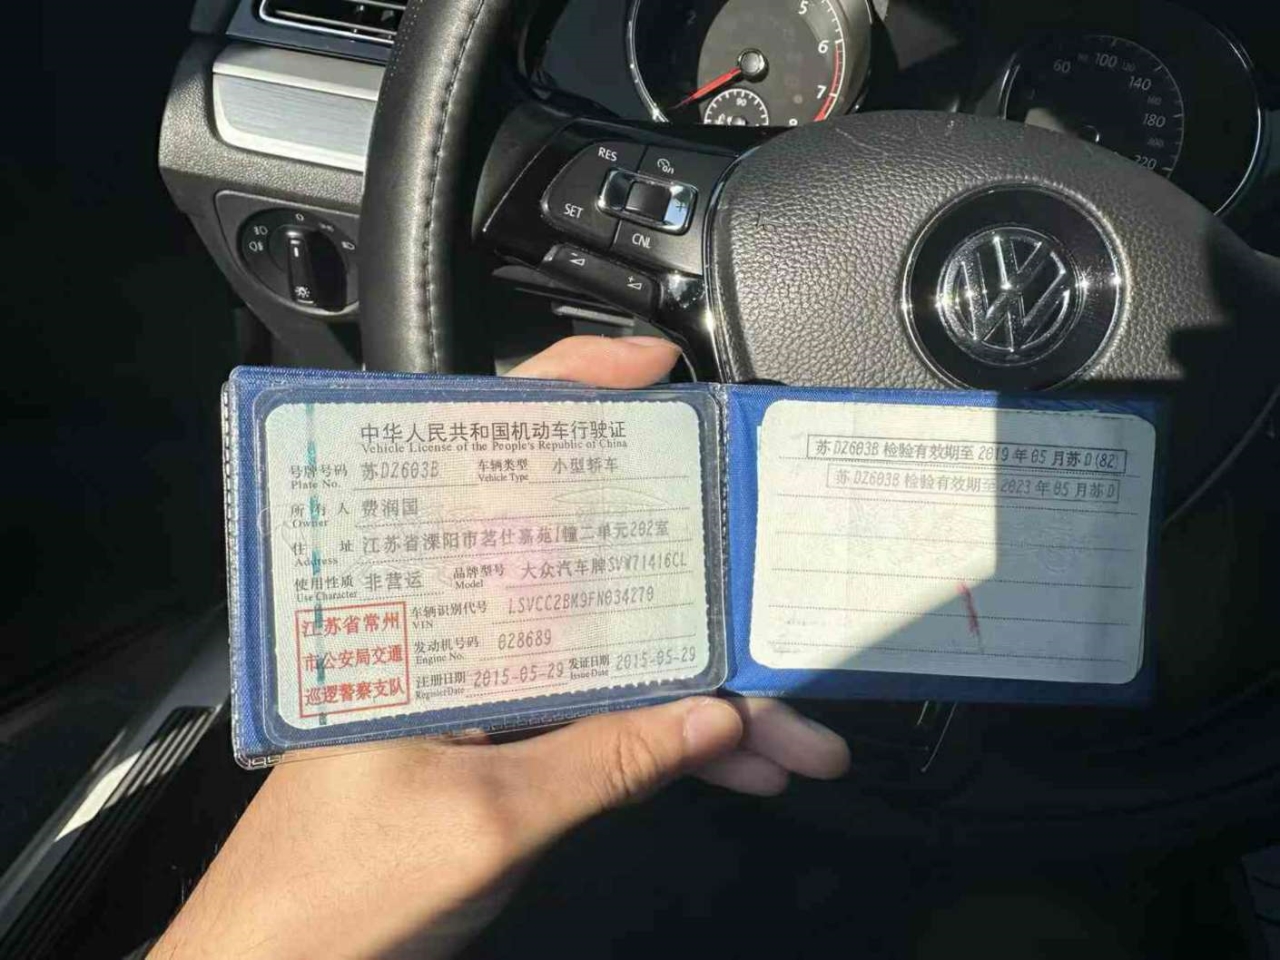 5
6
7
8
90
60 80 100 120
140
160
180
200
220
RES
SET
CNL
中华人民共和国机动车行驶证
Vehicle License of the People's Republic of China
号牌号码 苏DZ603B 车辆类型 小型轿车
Plate No. Vehicle Type
所有人 费润国
Owner
住址 江苏省溧阳市茗仕嘉苑1幢二单元202室
Address
使用性质 非营运 品牌型号 大众汽车牌SVW71416CL
Use Character Model
车辆识别代号 LSVCC2BM9FN034270
VIN
发动机号码 028689
Engine No.
注册日期 2015-05-29 发证日期 2015-05-29
Register Date Issue Date
江苏省常州
市公安局交通
巡逻警察支队
苏DZ603B 检验有效期至 2019年05月苏D(82)
苏DZ603B 检验有效期至 2023年05月苏D